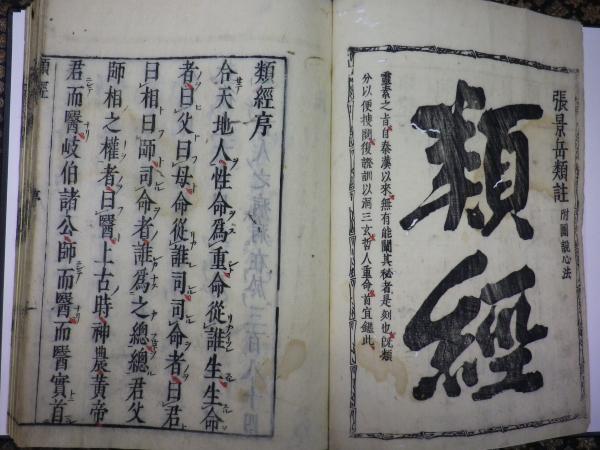 張景岳類註 附圖說心法
類經
靈素之旨自秦漢以來無有能闡其秘者是刻也既類
分以便搜閱復證訓以洞三玄哲人重命首宜鑑此
類經序
合天地人性命為重命從誰生生命
者曰父曰母命從誰司司命者曰君
曰相曰師司命者誰為之總總君父
師相之權者曰醫上古時神農黃帝
君而醫岐伯諸公師而醫而醫實首
類經